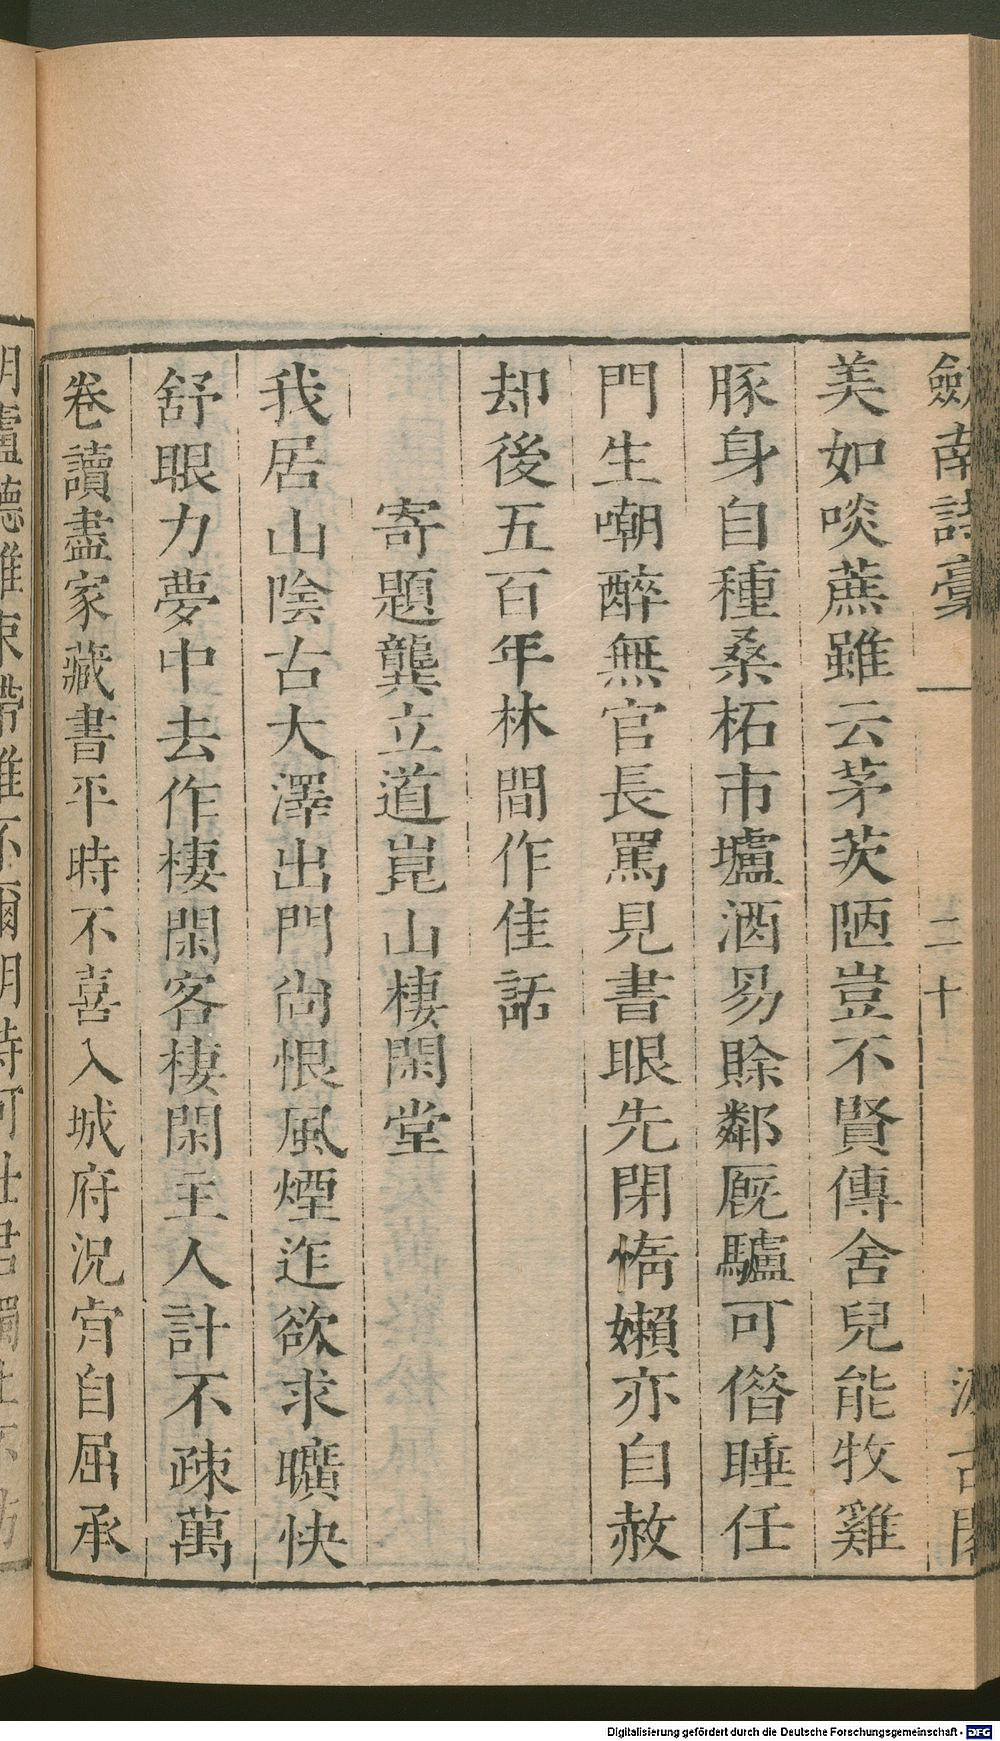 劒南詩稾 二十 汲古閣
美如啖蔗雖云茅茨陋豈不賢傳舍兒能牧雞
豚身自種桑柘市壚酒易賒鄰厩驢可僭睡任
門生嘲醉無官長罵見書眼先閉惰嬾亦自赦
却後五百年林間作佳話
寄題龔立道崑山棲閑堂
我居山陰古大澤出門尙恨風煙迮欲求曠快
舒眼力夢中去作棲閑客棲閑主人計不疎萬
卷讀盡家藏書平時不喜入城府況肯自屈承
明廬
Digitalisierung gefördert durch die Deutsche Forschungsgemeinschaft - DFG